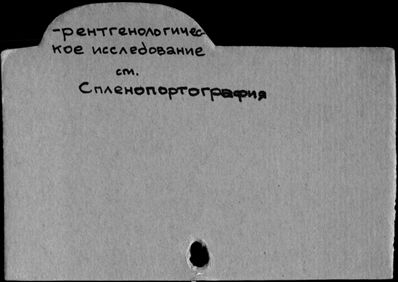 -рентгенологичес-
кое исследование
ст.
Спленопортография